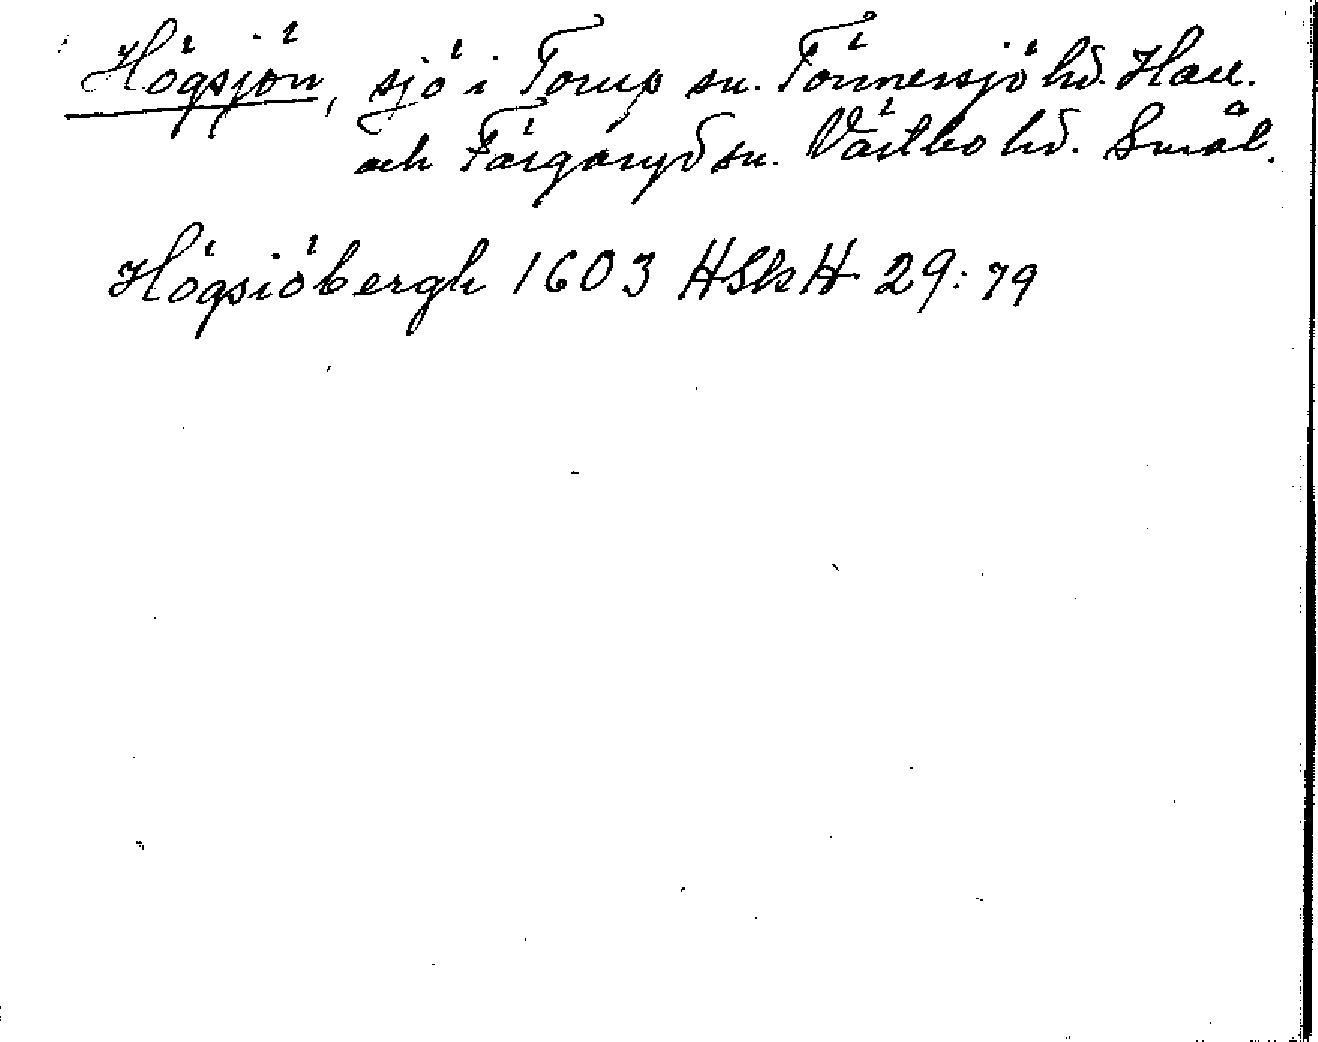 Högsjön, sjö i Torup sn. Tönnersjö hd. Hall.
och Färgaryd sn. Västbo hd. Smål.
Högsiöbergh 1603 HSkH 29:79